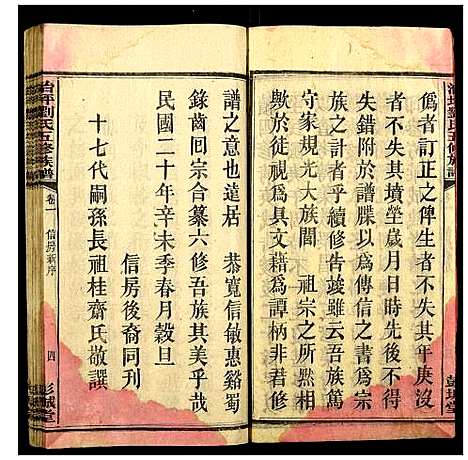 治坪劉氏五修族譜
偽者訂正之俾生者不失其年庚沒
者不失其墳塋歲月日時先後不得
失錯附於譜牒以為傳信之書為宗
族之計者乎續修告竣雖云吾族篤
守家規光大族閭 祖宗之所默相
歟於徒視為具文藉為譚柄非君修
譜之意也遠居 恭寬信敏惠谿蜀
錄齒回宗合纂六修吾族其美乎哉
民國二十年辛未季春月穀旦
信房後裔同刊
十七代嗣孫長祖桂齋氏敬譔
治坪劉氏五修族譜
卷一
信房新序
四
彭城堂